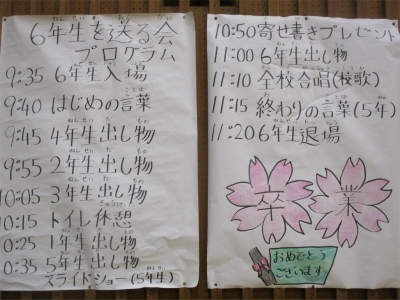 6年生を送る会
プログラム
9:35 6年生入場
9:40 はじめの言葉
9:45 4年生出し物
9:55 2年生出し物
10:05 3年生出し物
10:15 トイレ休憩
0:25 1年生出し物
0:35 5年生出し物
スライドショー(5年生)
10:50 寄せ書きプレゼント
11:00 6年生出し物
11:10 全校合唱(校歌)
11:15 終わりの言葉(5年)
11:20 6年生退場
卒業
おめでとう
ございます